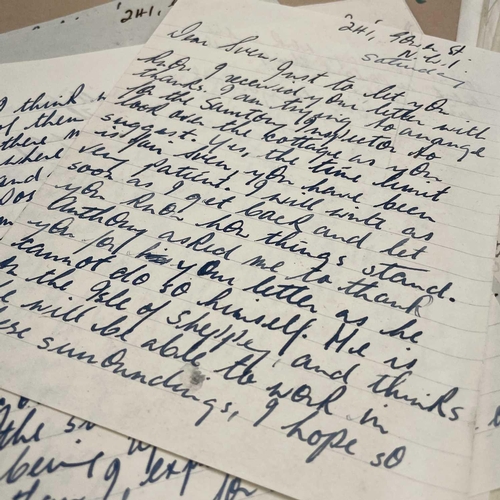 "2H1,
"2H1,
Saturday
Dear Sven, Just to let you
know I received your letter with
thanks. I am trying to arrange
for the Sanitary Inspector to
look over the cottage as you
suggest. Yes, the time limit
is fair Sven you have been
very patient. I will write as
soon as I get back and let
you know how things stand.
Anthony asked me to thank
you for your letter as he
cannot do so himself. He is
on the Isle of Sheppey, and thinks
he will be able to work in
these surroundings, I hope so
I think
of them
there
where
and
the
being I exp
for